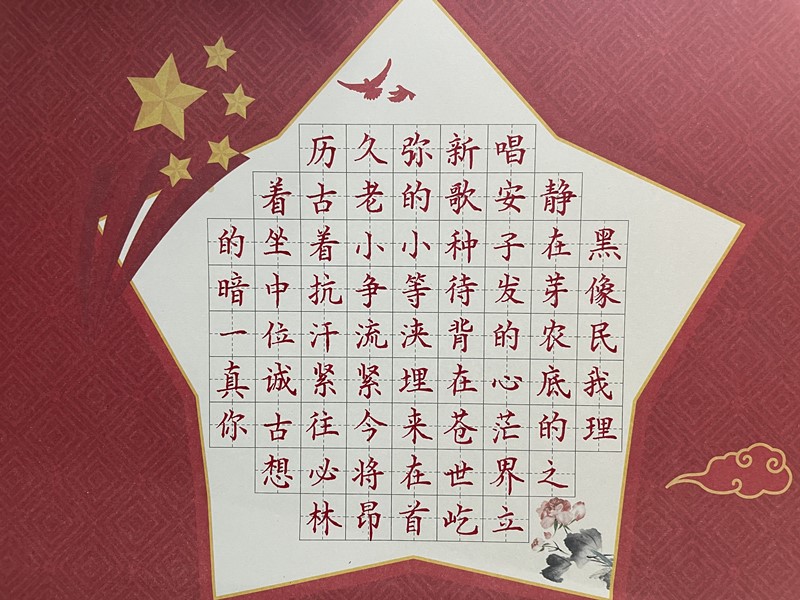 历久弥新唱
着古老的歌安静
的坐着小小种子在黑
暗中抗争等待发芽像
一位汗流浃背的农民
真诚紧紧埋在心底我
你古往今来苍茫的理
想必将在世界之
林昂首屹立